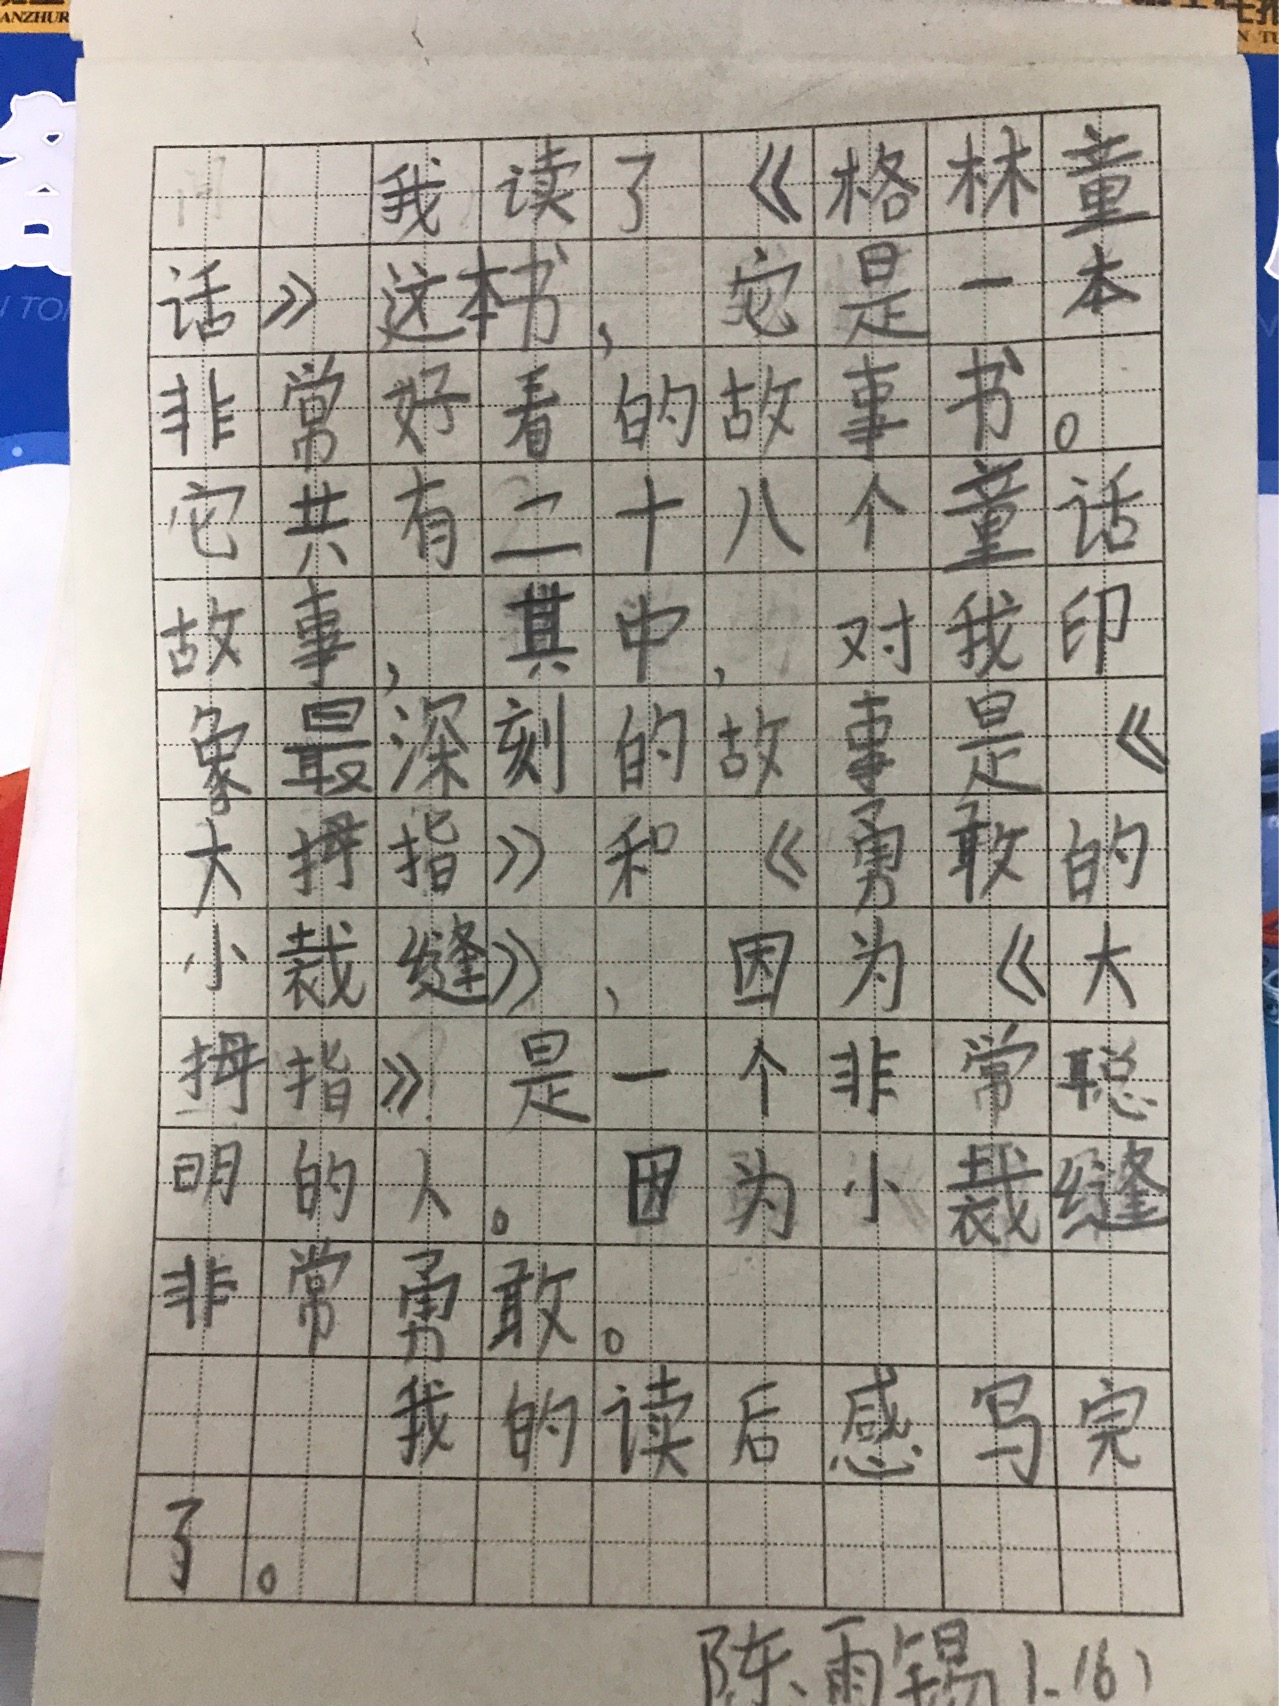 我读了《格林童
话》这本书，它是一本
非常好看的故事书。
它共有二十八个童话
故事，其中，对我印
象最深刻的故事是《
大拇指》和《勇敢的
小裁缝》，因为《大
拇指》是一个非常聪
明的人。因为小裁缝
非常勇敢。
我的读后感写完
了。
陈雨锡 1.(6)